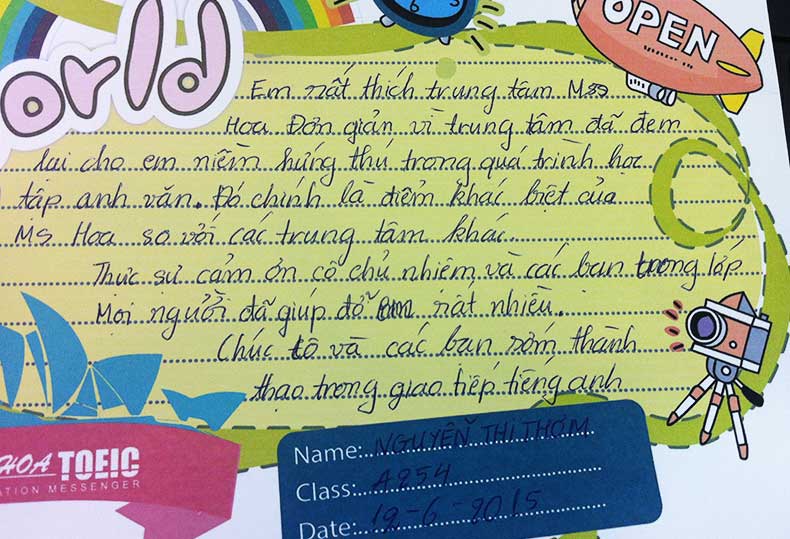 orld
OPEN
Em rất thích trung tâm Mss
Hoa. Đơn giản vì trung tâm đã đem
lại cho em niềm hứng thú trong quá trình học
tập anh văn. Đó chính là điểm khác biệt của
Ms Hoa so với các trung tâm khác.
Thực sự cảm ơn cô chủ nhiệm và các bạn trong lớp
Mọi người đã giúp đỡ em rất nhiều.
Chúc cô và các bạn sớm thành
thạo trong giao tiếp tiếng anh
HOA TOEIC
ATION MESSENGER
Name: NGUYỄN THỊ THƠM
Class: A254
Date: 12-6-2015